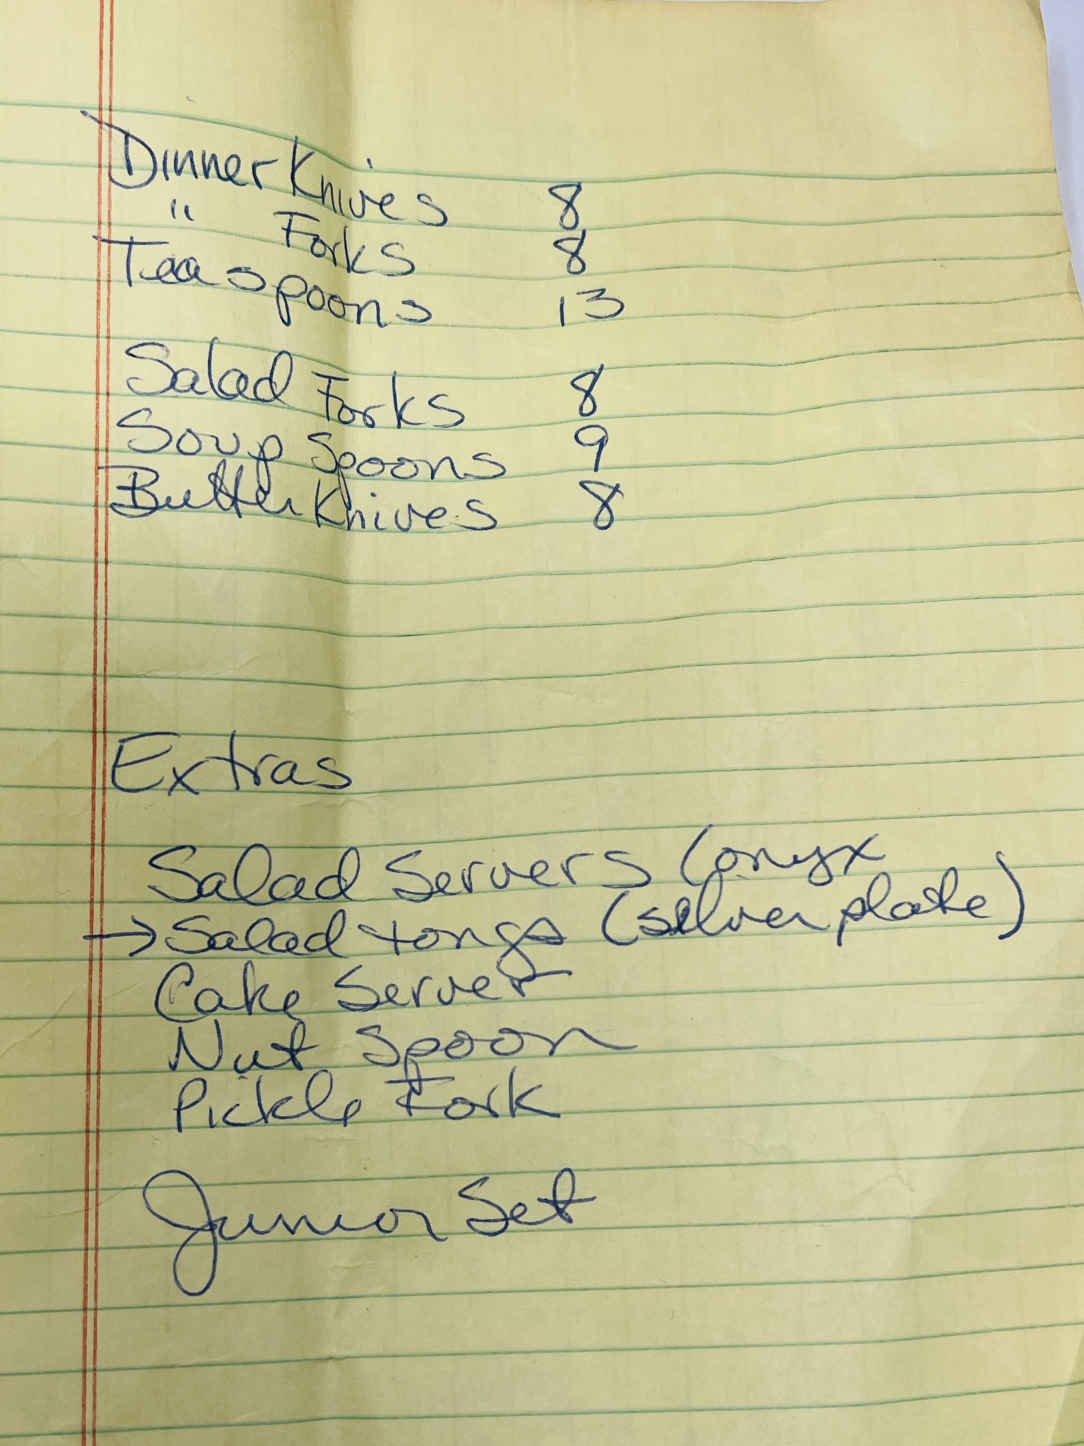 Dinner Knives 8
" Forks 8
Teaspoons 13
Salad Forks 8
Soup Spoons 9
Butter Knives 8
Extras
Salad Servers (onyx
→ Salad tongs (silverplate)
Cake Server
Nut Spoon
Pickle Fork
Junior Set